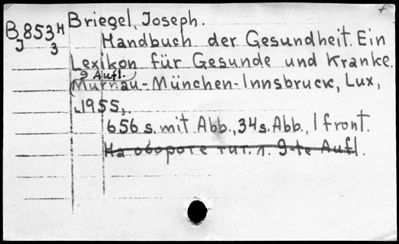 B853H Briegel, Joseph.
J 3 Handbuch der Gesundheit. Ein
Lexikon für Gesunde und Kranke.
9 Aufl.
Murnau-München-Innsbruck, Lux,
1955,
656 s. mit Abb., 34 s. Abb., 1 front.
На обороте тит. л. 9-te Aufl.